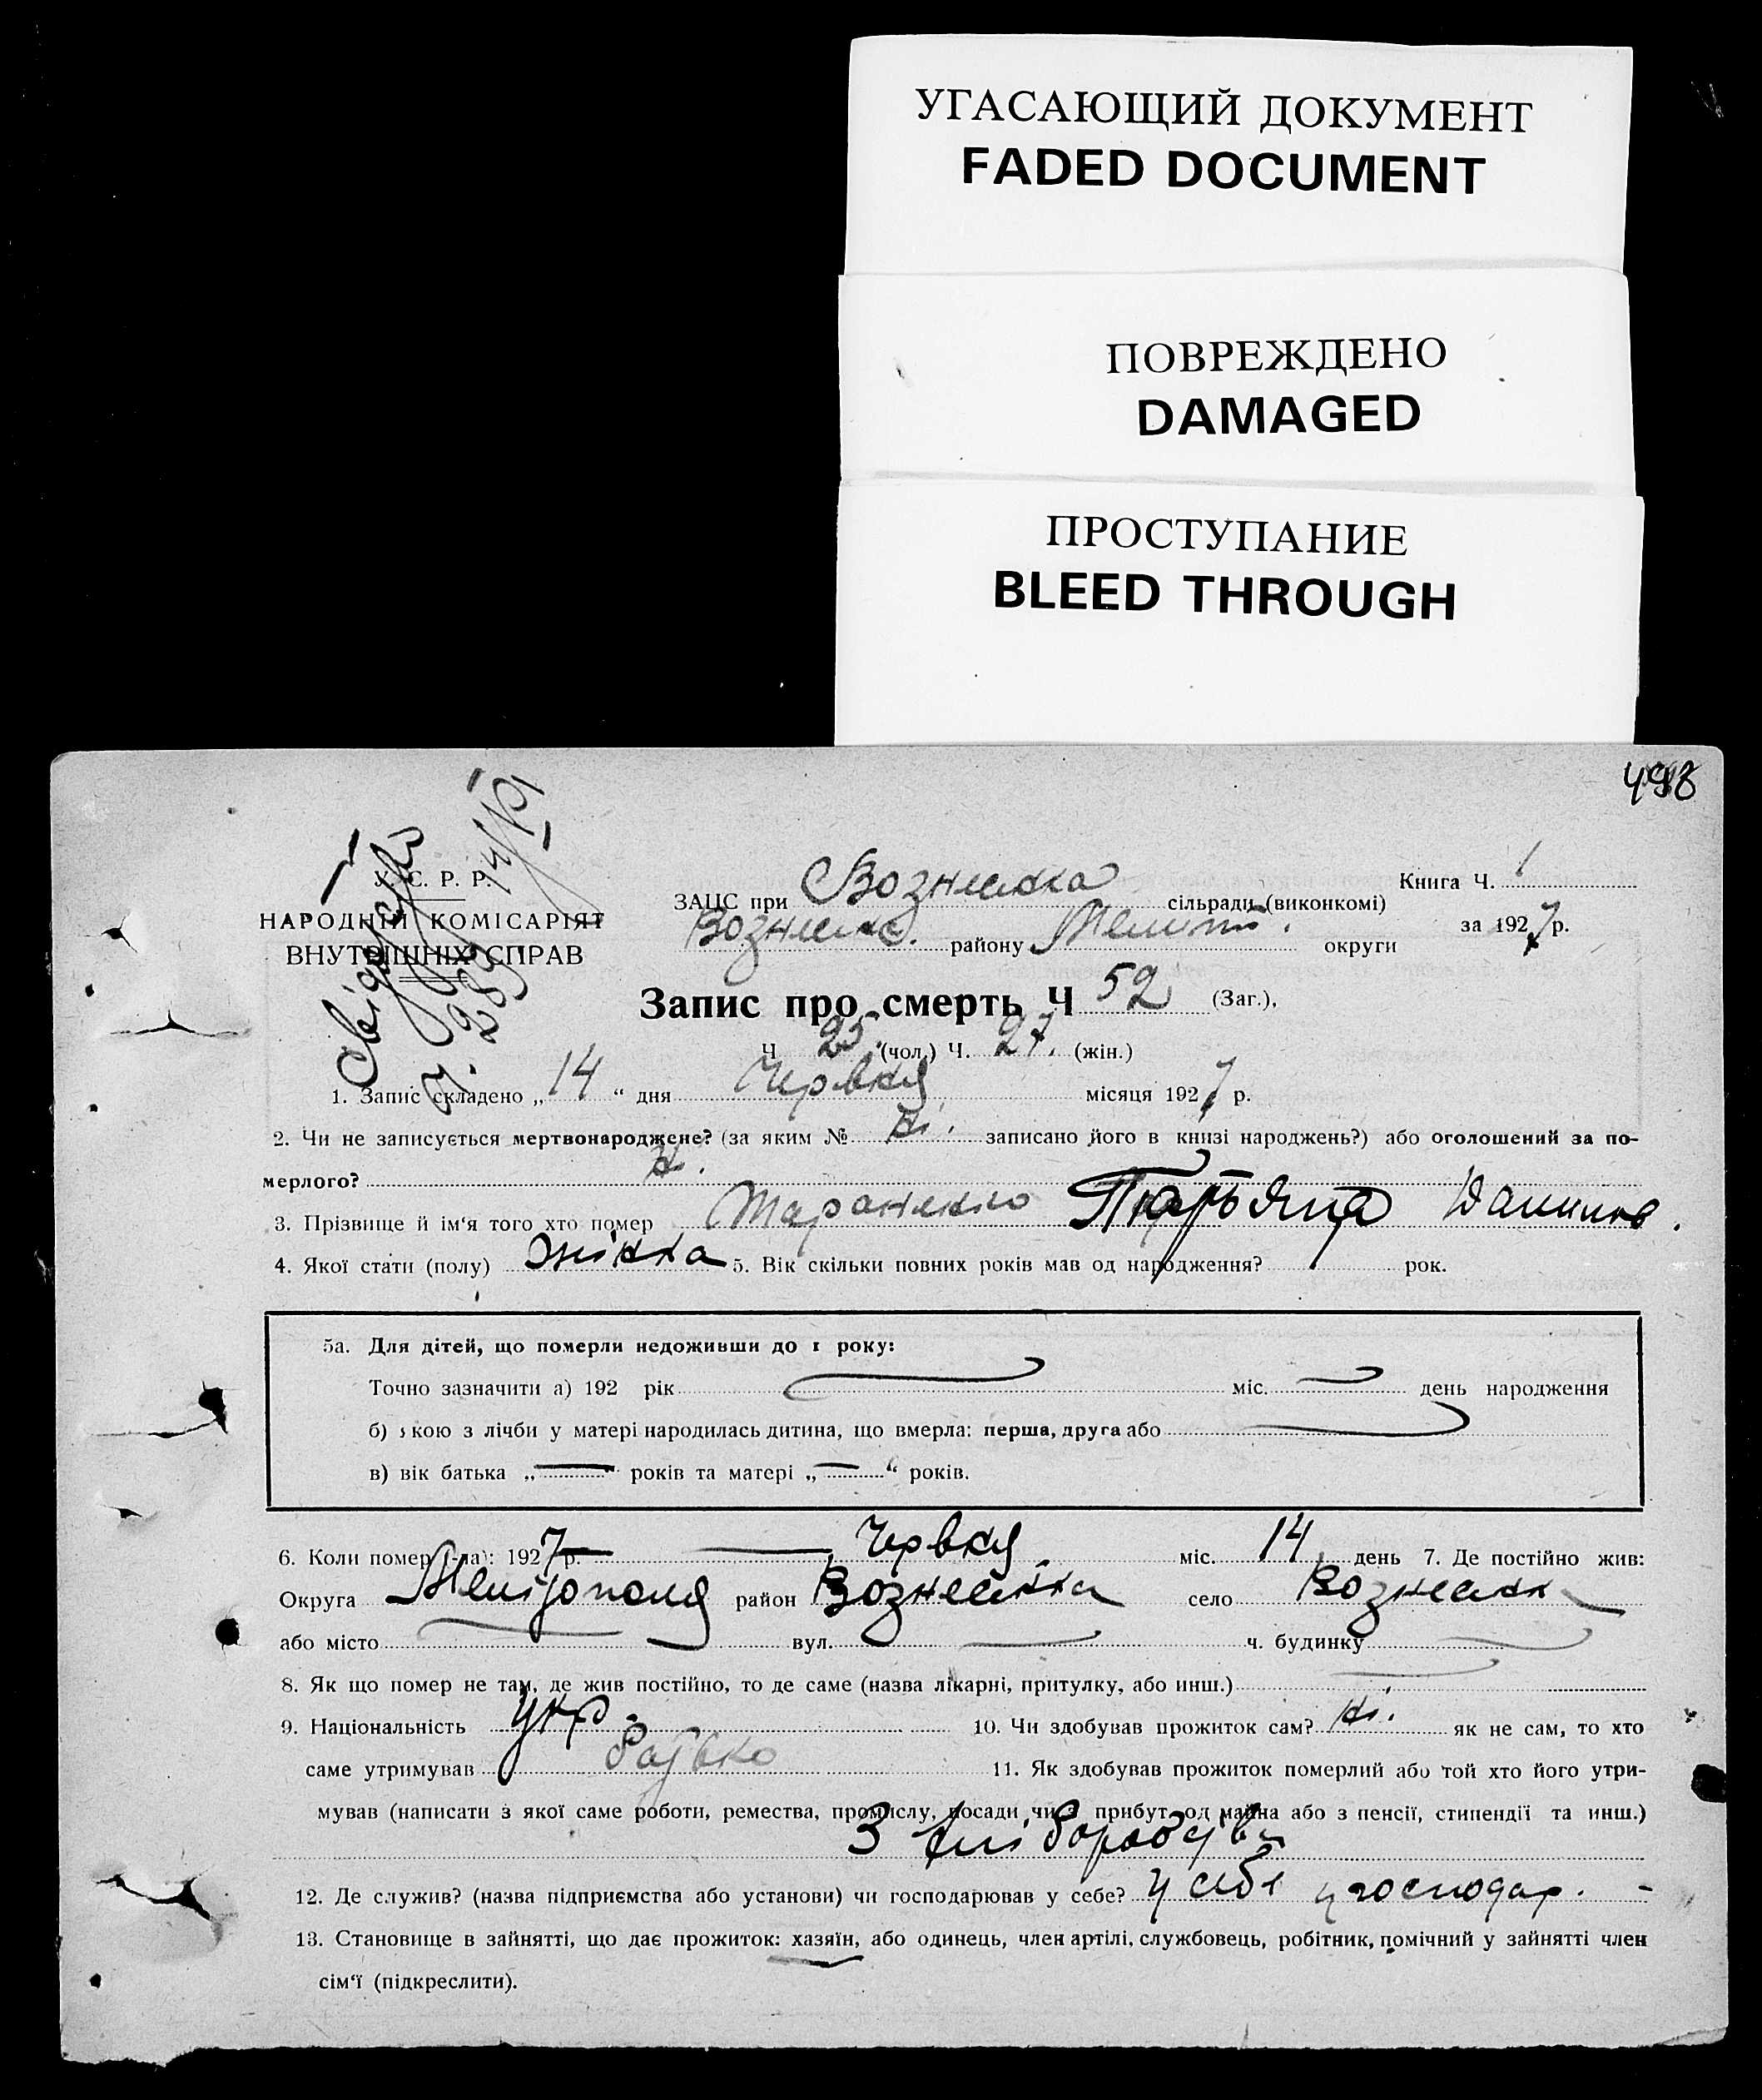 УГАСАЮЩИЙ ДОКУМЕНТ
FADED DOCUMENT
ПОВРЕЖДЕНО
DAMAGED
ПРОСТУПАНИЕ
BLEED THROUGH
498
У. С. Р. Р.
НАРОДНІЙ КОМІСАРІЯТ
ВНУТРІШНІХ СПРАВ
Книга Ч. 1
ЗАЦС при Вознесенка сільради (виконкомі)
за 1927 р.
Вознесенс. району Мелит. округи
Запис про смерть Ч 52 (Заг.),
Ч 25 (чол.) Ч. 27. (жін.)
1. Запис складено „ 14 “ дня Червня місяця 1927 р.
2. Чи не записується мертвонароджене? (за яким № Ні. записано його в книзі народжень?) або оголошений за по-
мерлого? Ні.
3. Прізвище й ім'я того хто помер Тараненко Татьяна Данилов.
4. Якої стати (полу) жінка 5. Вік скільки повних років мав од народження? рок.
5а. Для дітей, що померли недоживши до 1 року:
Точно зазначити а) 192 рік міс. день народження
б) якою з лічби у матері народилась дитина, що вмерла: перша, друга або
в) вік батька „ — “ років та матері „ — “ років.
6. Коли помер (-ла): 1927 р. Червня міс. 14 день 7. Де постійно жив:
Округа Мелітополя район Вознесенка село Вознесенк
або місто вул. ч. будинку
8. Як що помер не там, де жив постійно, то де саме (назва лікарні, притулку, або инш.)
9. Національність укр. 10. Чи здобував прожиток сам? Ні. як не сам, то хто
саме утримував батько 11. Як здобував прожиток померлий або той хто його утри-
мував (написати з якої саме роботи, ремества, промислу, посади чи з прибут. од майна або з пенсії, стипендії та инш.)
З хліборобства
12. Де служив? (назва підприємства або установи) чи господарював у себе? у себе у господар. -
13. Становище в зайнятті, що дає прожиток: хазяїн, або одинець, член артілі, службовець, робітник, помічний у зайнятті член
сім'ї (підкреслити).